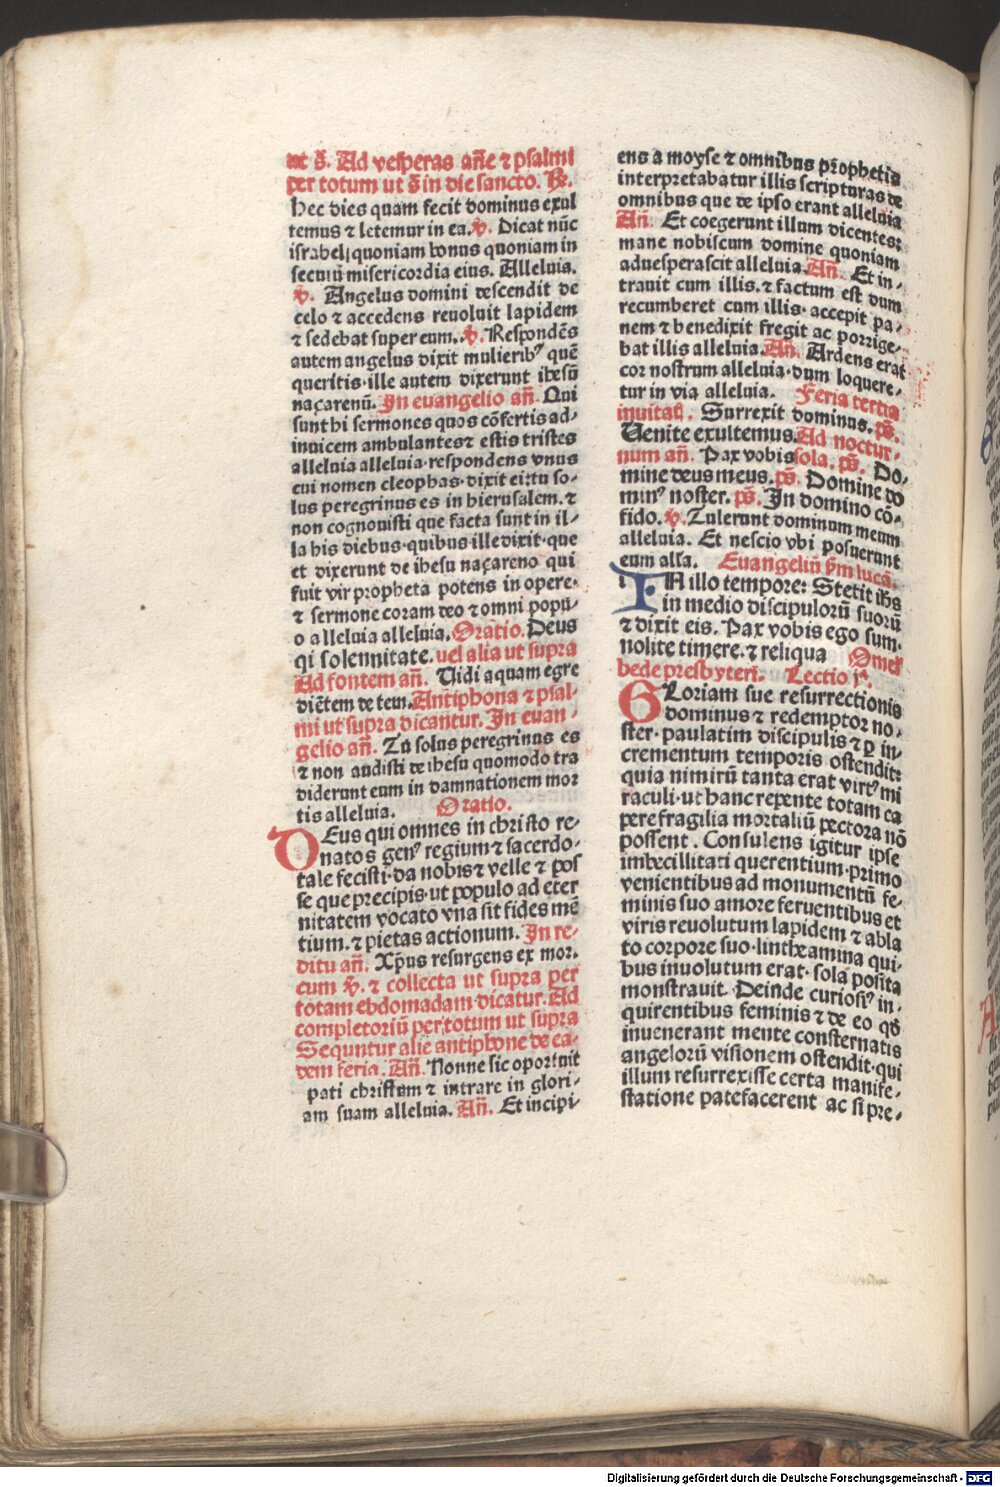 ut s̄. Ad vesperas an̄e ⁊ psalmi
per totum ut s̄ in die sancto. ℟.
Hec dies quam fecit dominus exul
temus ⁊ letemur in ea. ℣. Dicat nūc
israhel; quoniam bonus quoniam in
seculū misericordia eius. Alleluia.
℣. Angelus domini descendit de
celo ⁊ accedens reuoluit lapidem
⁊ sedebat super eum. ℣. Respondēs
autem angelus dixit mulieribꝰ quē
queritis·ille autem dixerunt ihesū
naçarenū. In euangelio an̄. Qui
sunt hi sermones quos cōfertis ad/
inuicem ambulantes⁊ estis tristes
alleluia alleluia·respondens vnus
cui nomen cleophas·dixit ei:tu so/
lus peregrinus es in hierusalem.⁊
non cognouisti que facta sunt in il/
la his diebus·quibus ille dixit·que
et dixerunt de ihesu naçareno qui
fuit vir propheta potens in opere·
⁊ sermone coram deo ⁊ omni popu/
o alleluia alleluia. Oratio. Deus
qi solennitate. uel alia ut supra
Ad fontem an̄. Uidi aquam egre
diētem de tem. Antiphona ⁊ psal/
mi ut supra dicantur. In euan/
gelio an̄. Tu solus peregrinus es
⁊ non audisti de ihesu quomodo tra
diderunt eum in damnationem mor
tis alleluia. Oratio.
DEus qui omnes in christo re/
natos genꝰ regium ⁊ sacerdo/
tale fecisti·da nobis ⁊ velle ⁊ pos
se que precipis·ut populo ad eter
nitatem vocato vna sit fides mē
tium.⁊ pietas actionum. In re/
ditu an̄. Xp̄us resurgens ex mor.
cum ℣. ⁊ collecta ut supra per
totam ebdomadam dicatur. Ad
completoriū per totum ut supra
Sequntur alie antiphone de ea/
dem feria. An̄. Nonne sic oportuit
pati christum ⁊ intrare in glori/
am suam alleluia. An̄. Et incipi/
ens a moyse ⁊ omnibus prophetis
interpretabatur illis scripturas de
omnibus que de ipso erant alleluia
An̄. Et coegerunt illum dicentes:
mane nobiscum domine quoniam
aduesperascit alleluia. An̄. Et in/
trauit cum illis.⁊ factum est dum
recumberet cum illis·accepit pa/
nem ⁊ benedixit fregit ac porrige/
bat illis alleluia. An̄. Ardens erat
cor nostrum alleluia·dum loquere/
tur in via alleluia. Feria tertia
inuitat̄. Surrexit dominus. ps̄.
Uenite exultemus. Ad noctur/
num an̄. Pax vobis sola. ps̄. Do/
mine deus meus. ps̄. Domine do
minꝰ noster. ps̄. In domino cō/
fido. ℣. Tulerunt dominum meum
alleluia. Et nescio vbi posuerunt
eum all'a. Euangeliū s̄m lucā.
IN illo tempore: Stetit ihs̄
in medio discipulorū suorū
⁊ dixit eis. Pax vobis ego sum.
nolite timere.⁊ reliqua Omel'
bede presbyteri. Lectio jᵃ.
GLoriam sue resurrectionis
dominus ⁊ redemptor no/
ster·paulatim discipulis ⁊ ꝑ in/
crementum temporis ostendit:
quia nimirū tanta erat virtꝰ mi
raculi·ut hanc repente totam ca
pere fragilia mortaliū pectora nō
possent. Consulens igitur ipse
imbecillitati querentium·primo
venientibus ad monumentū fe/
minis suo amore feruentibus et
viris reuolutum lapidem ⁊ abla
to corpore suo·lintheamina qui/
bus inuolutum erat·sola posita
monstrauit. Deinde curiosiꝰ in/
quirentibus feminis ⁊ de eo qd̄
inuenerant mente consternatis
angelorū visionem ostendit·qui
illum resurrexisse certa manife/
statione patefacerent ac si pre/
Digitalisierung gefördert durch die Deutsche Forschungsgemeinschaft - DFG